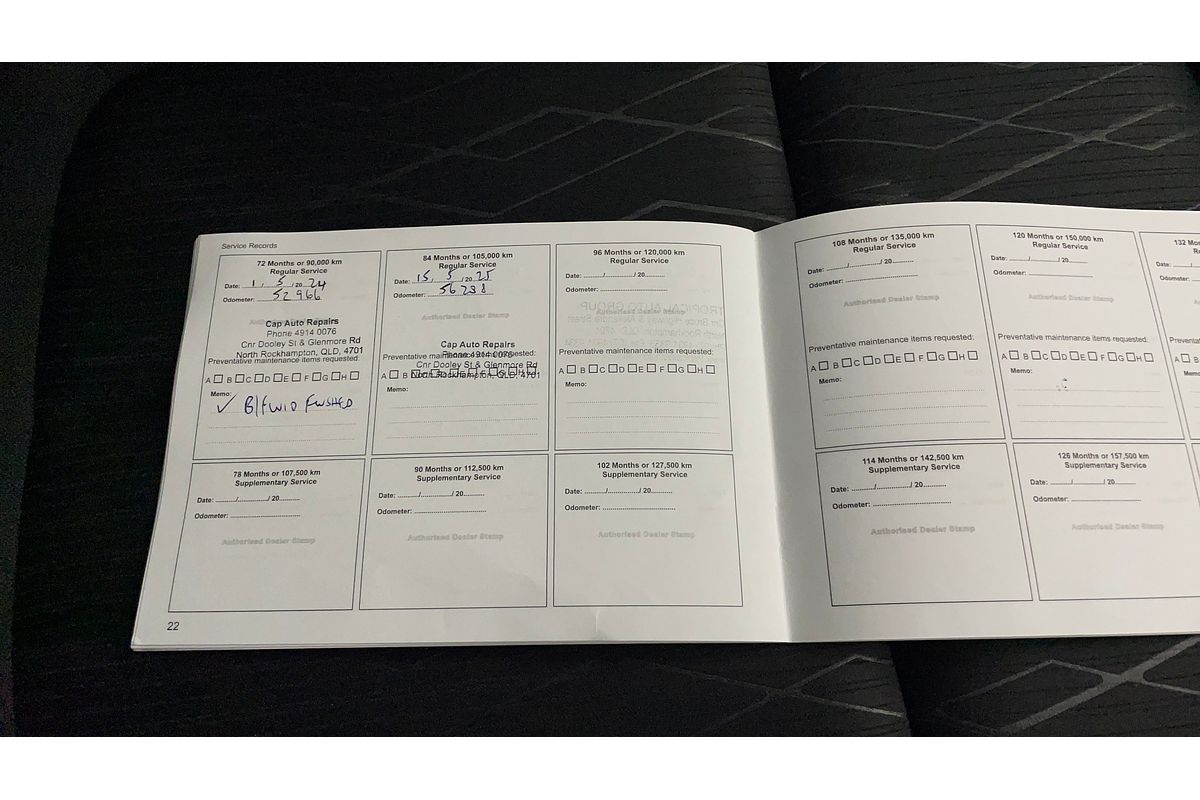 Service Records
72 Months or 90,000 km
Regular Service
Date: 1 / 5 / 20 24
Odometer: 52 966
Cap Auto Repairs
Phone 4914 0076
Cnr Dooley St & Glenmore Rd
North Rockhampton, QLD, 4701
Preventative maintenance items requested:
A B C D E F G H
Memo:
✓ B/FWID FWSHED
84 Months or 105,000 km
Regular Service
Date: 15 / 5 / 20 25
Odometer: 56 238
Authorised Dealer Stamp
Cap Auto Repairs
Preventative maintenance items requested:
Phone 4914 0076
Cnr Dooley St & Glenmore Rd
A B C D E F G H
North Rockhampton, QLD, 4701
Memo:
96 Months or 120,000 km
Regular Service
Date: ........./................/ 20.........
Odometer: ................................
Authorised Dealer Stamp
Preventative maintenance items requested:
A B C D E F G H
Memo:
78 Months or 107,500 km
Supplementary Service
Date: ........./................/ 20.........
Odometer: ................................
Authorised Dealer Stamp
90 Months or 112,500 km
Supplementary Service
Date: ........./................/ 20.........
Odometer: ................................
Authorised Dealer Stamp
102 Months or 127,500 km
Supplementary Service
Date: ........./................/ 20.........
Odometer: ................................
Authorised Dealer Stamp
22
108 Months or 135,000 km
Regular Service
Date: ........./................/ 20.........
Odometer: ................................
Authorised Dealer Stamp
Preventative maintenance items requested:
A B C D E F G H
Memo:
120 Months or 150,000 km
Regular Service
Date: ........./................/ 20.........
Odometer: ................................
Authorised Dealer Stamp
Preventative maintenance items requested:
A B C D E F G H
Memo:
132
114 Months or 142,500 km
Supplementary Service
Date: ........./................/ 20.........
Odometer: ................................
Authorised Dealer Stamp
126 Months or 157,500 km
Supplementary Service
Date: ........./................/ 20.........
Odometer: ................................
Authorised Dealer Stamp